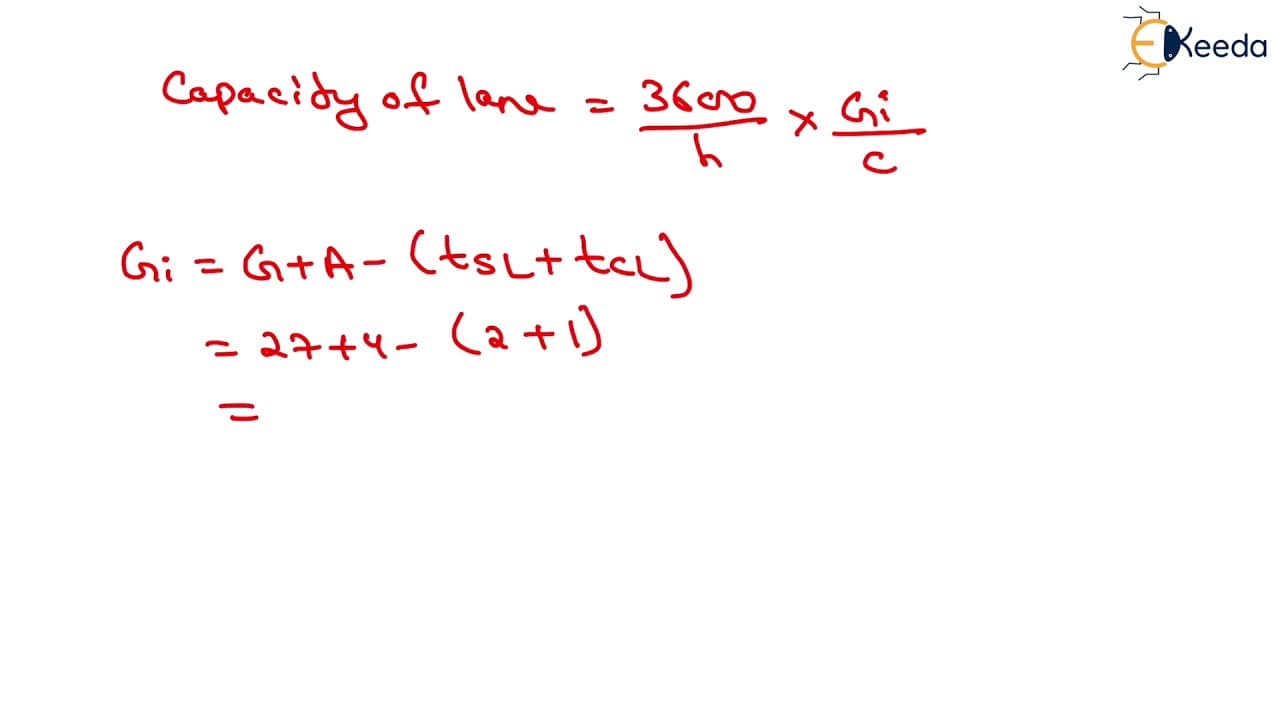 EKeeda
Capacity of lane = 3600/h × Gi/C
Gi = G+A-(tSL+tCL)
= 27+4-(2+1)
=